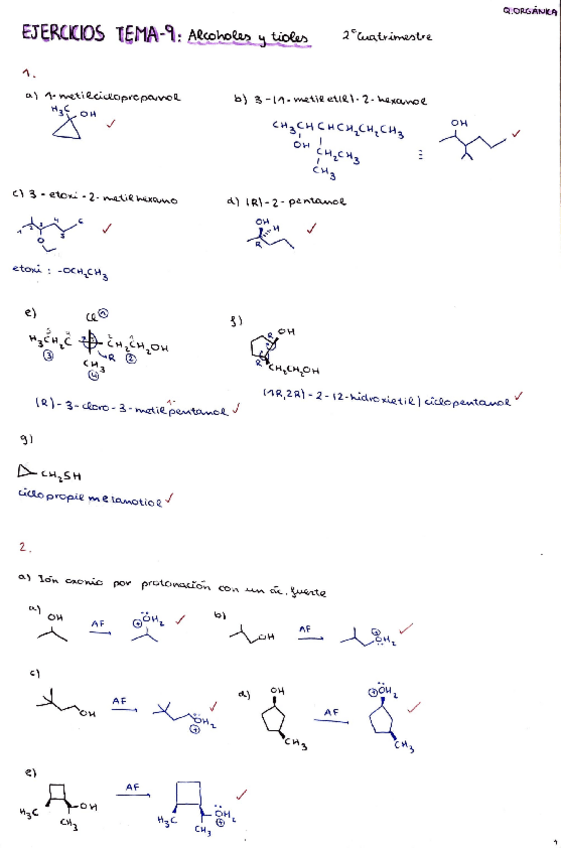 Q.ORGÁNICA
EJERCICIOS TEMA-9: Alcoholes y tioles 2º Cuatrimestre
1.
a) 1-metilciclopropanol
H₃C OH
b) 3-(1-metiletil)-2-hexanol
CH₃CHCHCH₂CH₂CH₃
OH CH₂CH₃
CH₃
OH
c) 3-etoxi-2-metilhexano
1 2 3 4 5 6
O
etoxi: -OCH₂CH₃
d) (R)-2-pentanol
OH
H
R
e)
Cl ①
H₃CH₂C CH₂CH₂OH
③ R ②
CH₃
④
(R)-3-cloro-3-metil-1-pentanol
f)
R OH
R CH₂CH₂OH
(1R,2R)-2-(2-hidroxietil)ciclopentanol
g)
CH₂SH
ciclopropilmetanotiol
2.
a) Ión oxonio por protonación con un ác. fuerte
a) OH AF ⊕ÖH₂
b) OH AF ⊕OH₂
c) OH AF OH₂ ⊕
d) OH CH₃ AF ⊕ÖH₂ CH₃
e) H₃C CH₃ OH AF H₃C CH₃ OH₂ ⊕
1